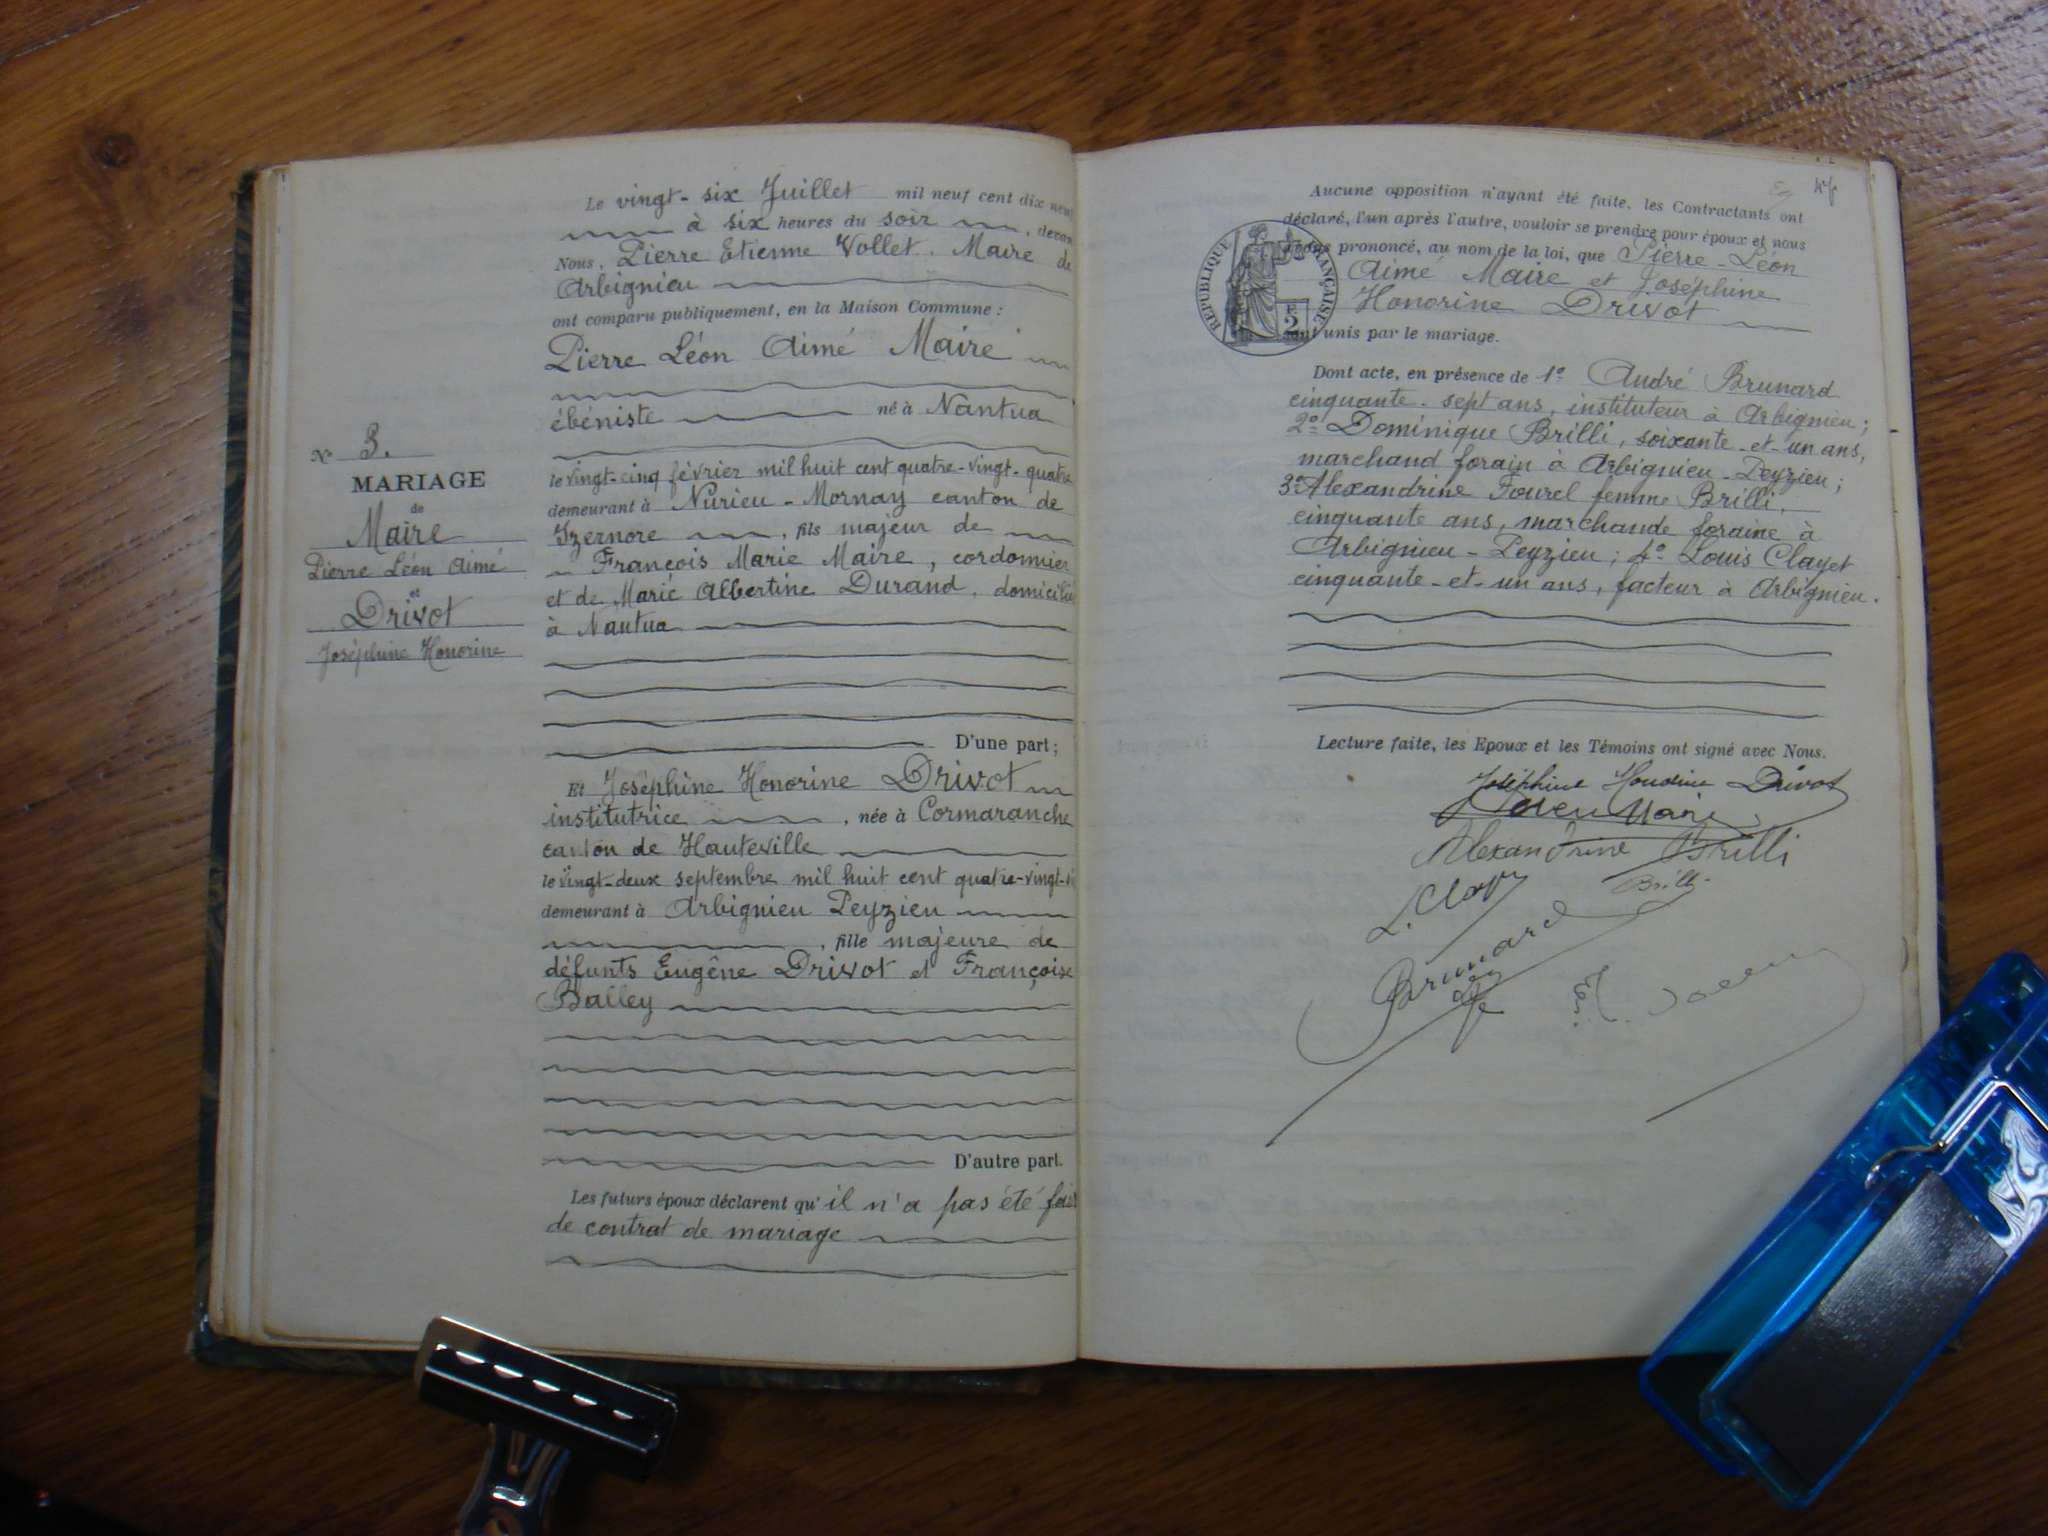 Le vingt-six Juillet mil neuf cent dix neuf
à six heures du soir, devan
Nous, Pierre Etienne Vollet. Maire de
Arbignieu
ont comparu publiquement, en la Maison Commune :
Pierre Léon Aimé Maire
ébéniste né à Nantua
le vingt-cinq février mil huit cent quatre-vingt-quatre
demeurant à Nurieu-Mornay canton de
Izernore, fils majeur de
François Marie Maire, cordonnier
et de Marie Albertine Durand, domicilié
à Nantua
D'une part;
Et Joséphine Honorine Drivot
institutrice, née à Cormaranche
canton de Hauteville
le vingt-deux septembre mil huit cent quatre-vingt-
demeurant à Arbignieu Peyzieu
, fille majeure de
défunts Eugène Drivot et Françoise
Balley
D'autre part.
Les futurs époux déclarent qu'il n'a pas été fait
de contrat de mariage
N° 3.
MARIAGE
de
Maire
Pierre Léon Aimé
et
Drivot
Joséphine Honorine
Aucune opposition n'ayant été faite, les Contractants ont
déclaré, l'un après l'autre, vouloir se prendre pour époux et nous
avons prononcé, au nom de la loi, que Pierre-Léon
Aimé Maire et Joséphine
Honorine Drivot
sont unis par le mariage.
RÉPUBLIQUE FRANÇAISE
2
Dont acte, en présence de 1° André Brunard
cinquante-sept ans, instituteur à Arbignieu;
2° Dominique Brilli, soixante-et-un ans,
marchand forain à Arbignieu-Peyzieu;
3° Alexandrine Fourel femme Brilli,
cinquante ans, marchande foraine à
Arbignieu-Peyzieu; 4° Louis Clayet
cinquante-et-un ans, facteur à Arbignieu.
Lecture faite, les Epoux et les Témoins ont signé avec Nous.
Joséphine Honorine Drivot
Maire
Alexandrine Brilli
Brilli
L. Clay
Brunard